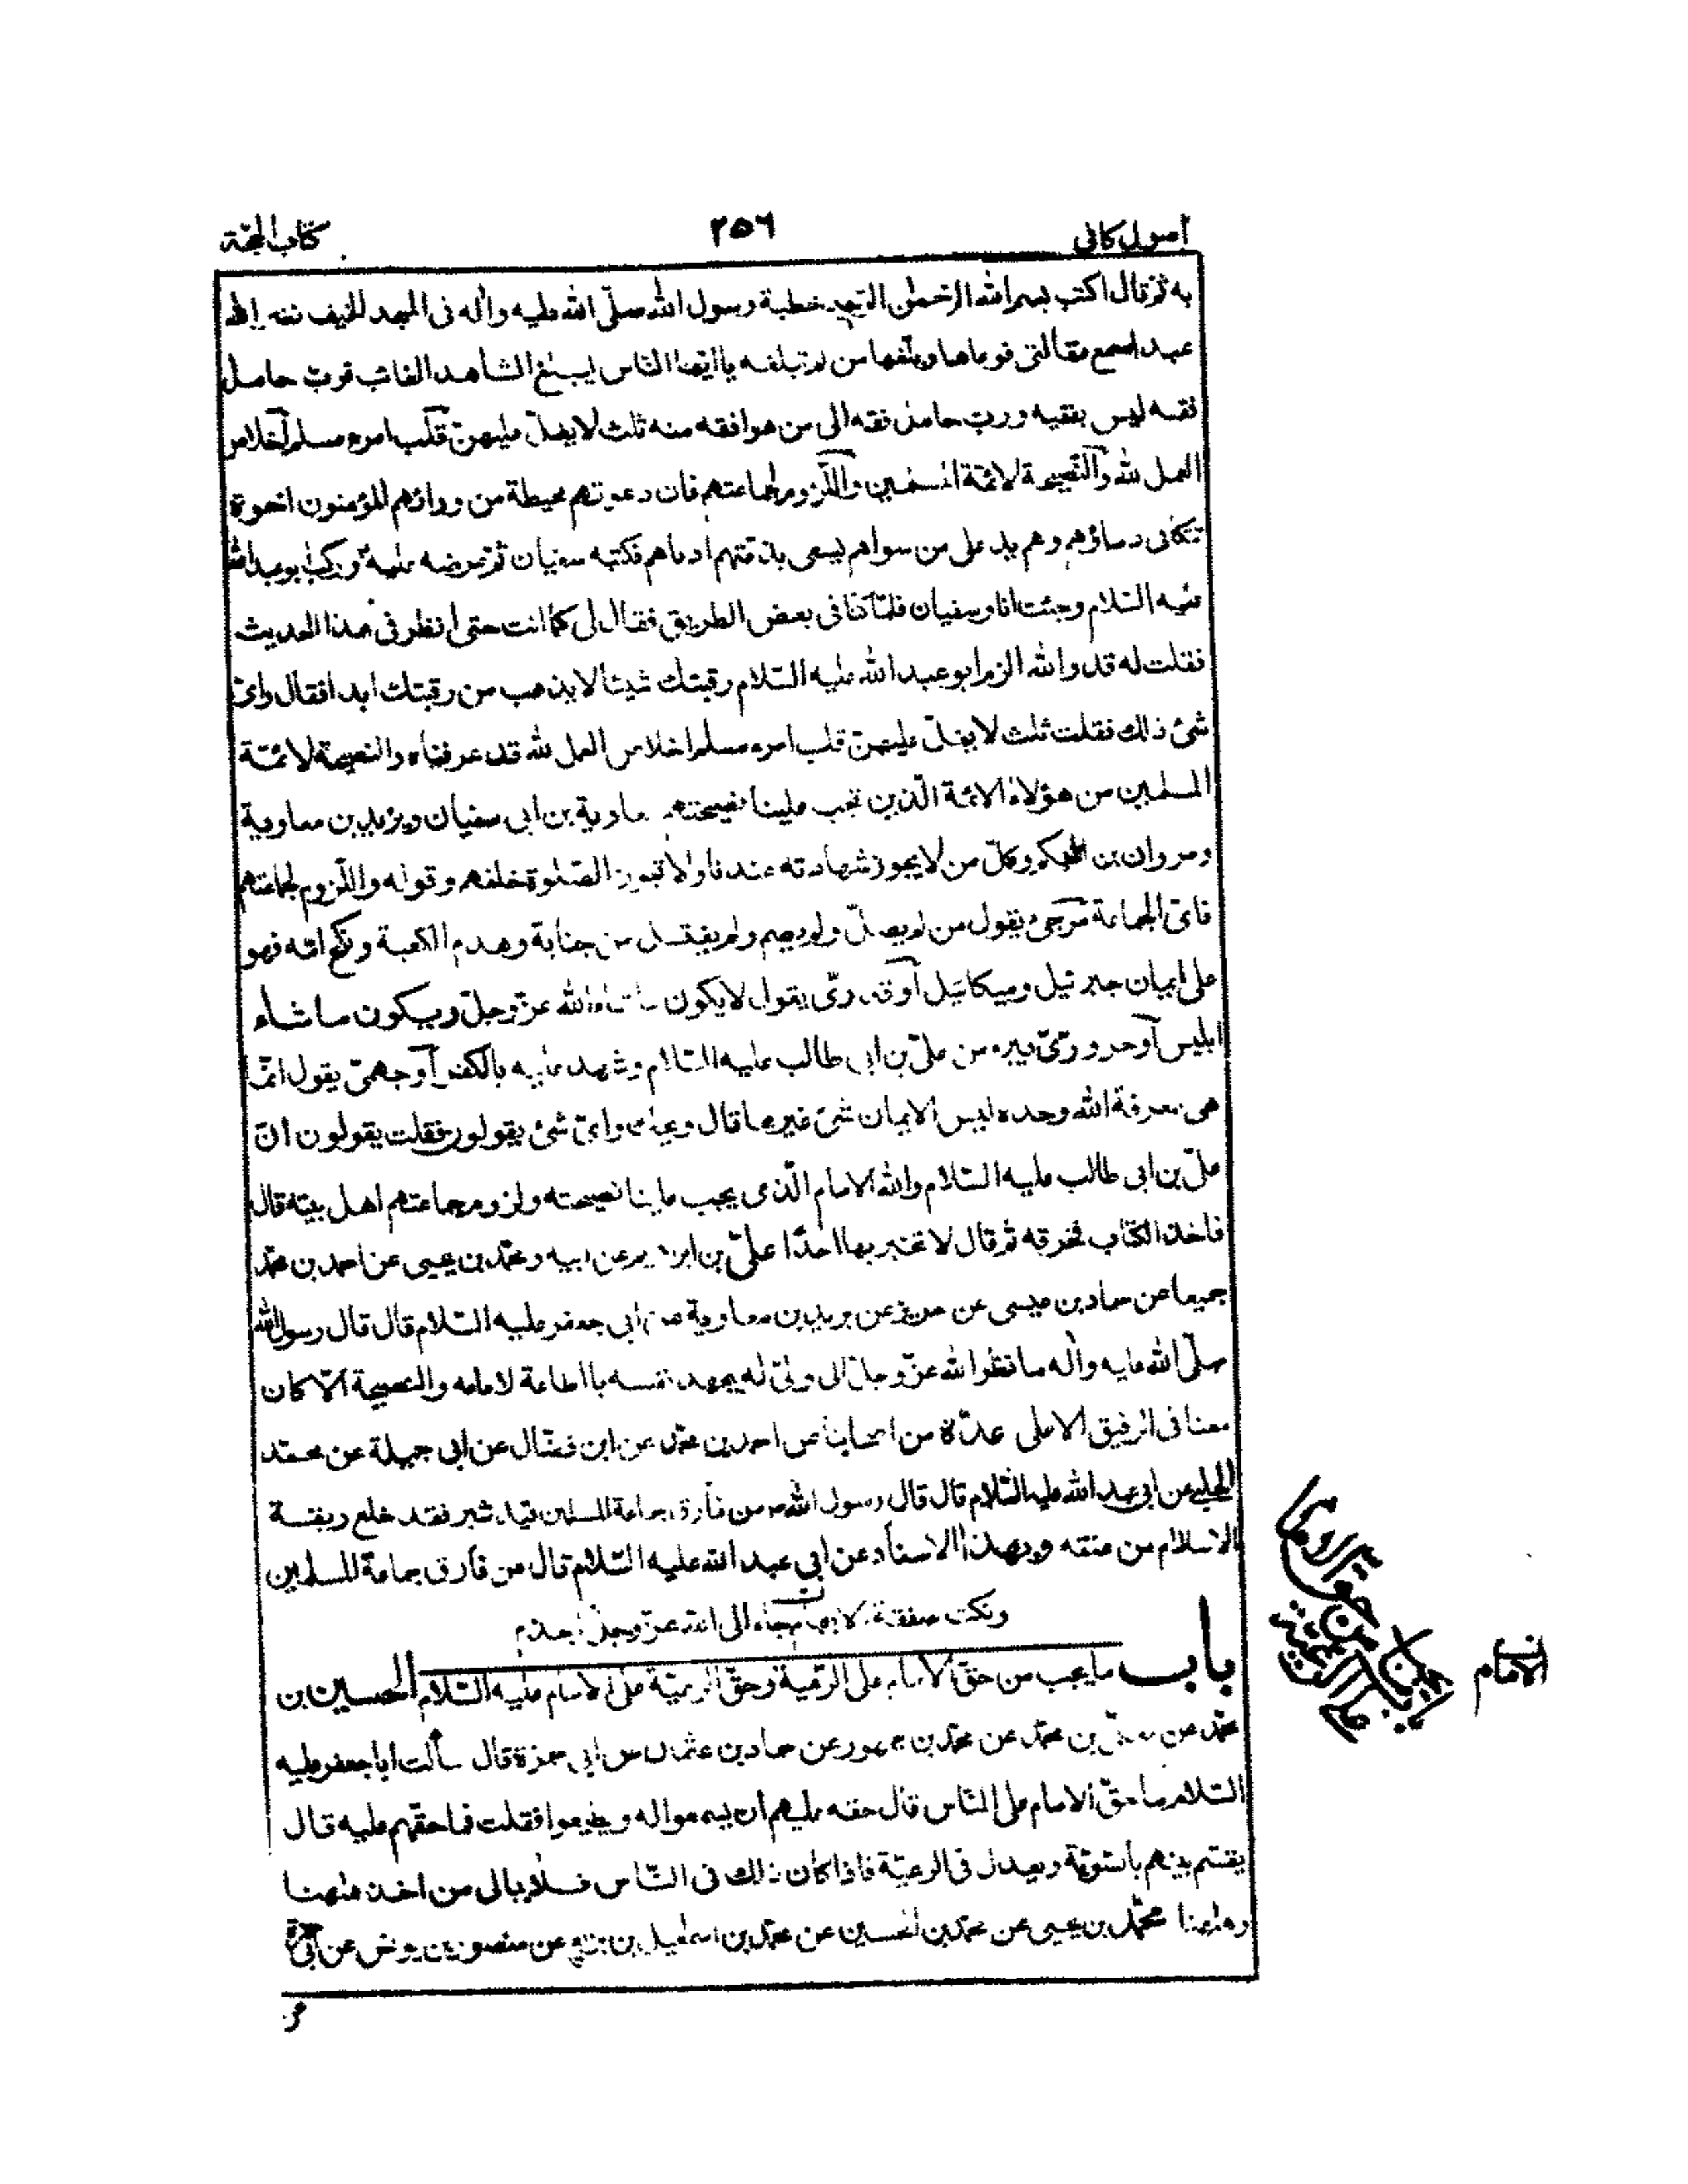 اصول كافى ٢٥٦ كتاب الحجّة
به ثم قال اكتب بسم الله الرّحمٰن الرّحيم خطبة رسول الله صلّى الله عليه وآله فى المسجد الخيف نضر الله
عبدا سمع مقالتى فوعاها وبلّغها من لم تبلغه يا ايّها النّاس ليبلغ الشاهد الغائب فربّ حامل
فقه ليس بفقيه وربّ حامل فقه الى من هو افقه منه ثلث لا يغلّ عليهنّ قلب امرء مسلم اخلاص
العمل لله والنّصيحة لائمّة المسلمين واللّزوم لجماعتهم فان دعوتهم محيطة من ورائهم المؤمنون اخوة
تتكافى دماؤهم وهم يد على من سواهم يسعى بذمّتهم ادناهم فكتبه سفيان ثم عرضه عليه وركب ابو عبد الله
عليه السّلام وجئت انا وسفيان فلمّا كنّا فى بعض الطريق فقال لى كما انت حتى انظر فى هذا الحديث
فقلت له قد والله الزم ابو عبد الله عليه السّلام رقبتك شيئا لا يذهب من رقبتك ابدا فقال واىّ
شئ ذلك فقلت ثلث لا يغلّ عليهنّ قلب امرء مسلم اخلاص العمل لله قد عرفناه والنصيحة لائمّة
المسلمين من هؤلاء الائمة الّذين تجب علينا نصيحتهم معاوية بن ابى سفيان ويزيد بن معاوية
ومروان بن الحكم وكلّ من لا يجوز شهادته عندنا ولا تجوز الصّلوة خلفهم وقوله واللّزوم لجماعتهم
فاىّ الجماعة مرجئ يقول من لم يصلّ ولم يصم ولم يغتسل من جنابة وهدم الكعبة ونكح امّه فهو
على ايمان جبرئيل وميكائيل او قدرىّ يقول لا يكون ما شاء الله عزّ وجلّ ويكون ما شاء
ابليس او حرورىّ يبرء من علىّ بن ابى طالب عليه السّلام وشهد عليه بالكفر او جهمىّ يقول انّما
هى معرفة الله وحده ليس الايمان شئ غيرها قال ويحك واىّ شئ يقولون فقلت يقولون انّ
علىّ بن ابى طالب عليه السّلام والله الامام الّذى يجب علينا نصيحته ولزوم جماعتهم اهل بيته قال
فاخذ الكتاب فخرقه ثم قال لا تخبر بها احدًا علىّ بن ابراهيم عن ابيه ومحمّد بن يحيى عن احمد بن محمّد
جميعا عن حماد بن عيسى عن حريز عن بريد بن معاوية عن ابى جعفر عليه السّلام قال قال رسول الله
صلّى الله عليه وآله ما نظر الله عزّ وجلّ الى ولىّ له يجهد نفسه بالطاعة لامامه والنصيحة الّا كان
معنا فى الرفيق الاعلى عدّة من اصحابنا عن احمد بن محمّد عن ابن فضّال عن ابى جميلة عن محمّد
الحلبى عن ابى عبد الله عليه السّلام قال قال رسول الله ص من فارق جماعة المسلمين قيد شبر فقد خلع ربقة
الاسلام من عنقه وبهذا الاسناد عن ابى عبد الله عليه السّلام قال من فارق جماعة المسلمين
ونكث صفقة الابهام جاء الى الله عزّ وجلّ اجذم
باب ما يجب من حقّ الامام على الرّعيّة وحقّ الرعيّة على الامام عليه السّلام الحسين بن
محمّد عن معلّى بن محمّد عن محمّد بن جمهور عن حماد بن عثمان عن ابى حمزة قال سألت ابا جعفر عليه
السّلام ما حقّ الامام على النّاس قال حقه عليهم ان يسمعوا له ويطيعوا فقلت فما حقّهم عليه قال
يقسّم بينهم بالسّويّة ويعدل فى الرعيّة فاذا كان ذلك فى النّاس فلا يبالى من اخذ ههنا
وههنا محمّد بن يحيى عن محمّد بن الحسين عن محمّد بن اسمعيل بن بزيع عن منصور بن يونس عن ابى حمزة
الامام